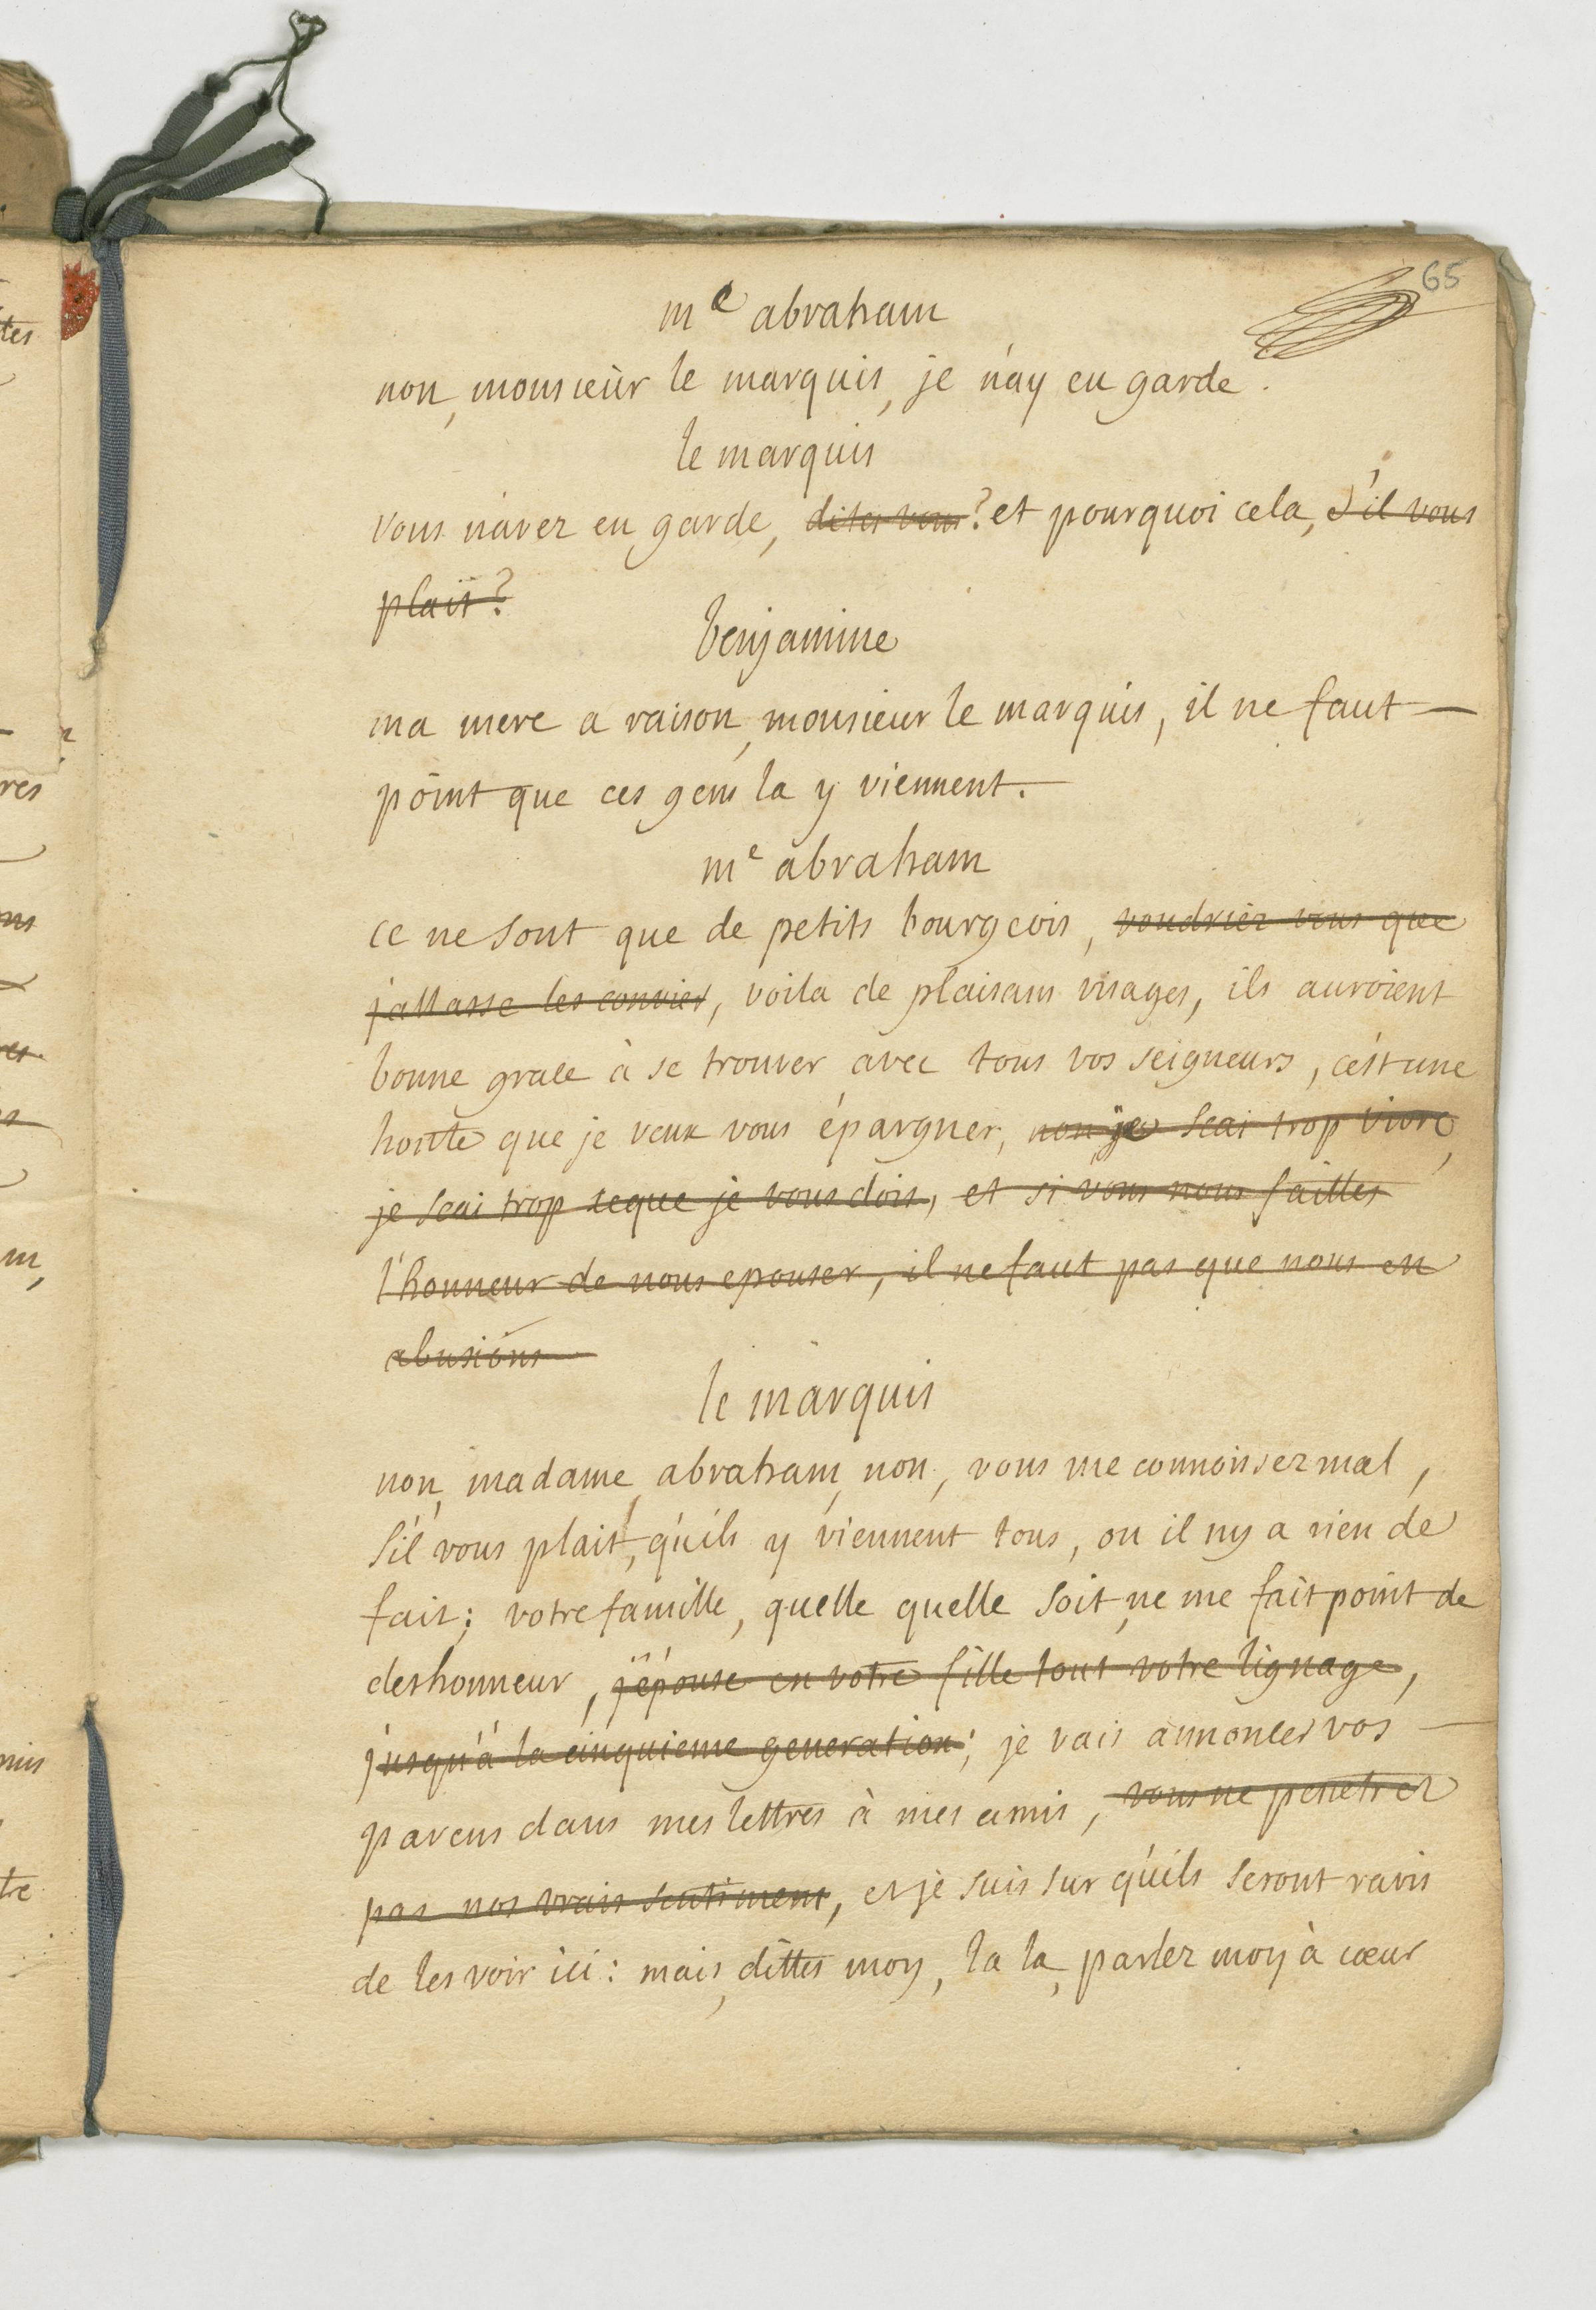 65
me abraham
non, monsieur le marquis, je n'ay eu garde.
le marquis
vous n'avez eu garde, dites vous? et pourquoi cela, s'il vous
plait?
benjamine
ma mere a raison, monsieur le marquis, il ne faut —
point que ces gens la y viennent. —
me abraham
ce ne sont que de petits bourgeois, voudriez vous que
j'allasse les convier, voila de plaisans visages, ils auroient
bonne grace à se trouver avec tous vos seigneurs, c'est une
honte que je veux vous épargner, non, je scai trop vivre,
je scai trop ceque je vous dois, et si vous nous faittes
l'honneur de nous epouser, il ne faut pas que nous en
abusions —
le marquis
non, madame abraham, non, vous me connoissez mal,
s'il vous plait, qu'ils y viennent tous, ou il ny a rien de
fait; votre famille, quelle quelle soit, ne me fait point de
deshonneur, j'épouse en votre fille tout votre lignage,
jusqu'à la cinquieme generation; je vais annoncer vos —
parens dans mes lettres à mes amis, vous ne penetrez
pas nos vrais sentimens, et je suis sur qu'ils seront ravis
de les voir ici: mais, dittes moy, la la, parlez moy à cœur